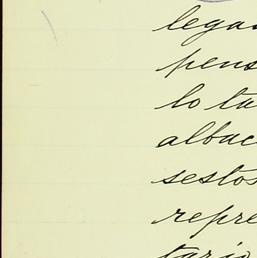 lega
pens
lo ta
albac
sestos
repre
tario